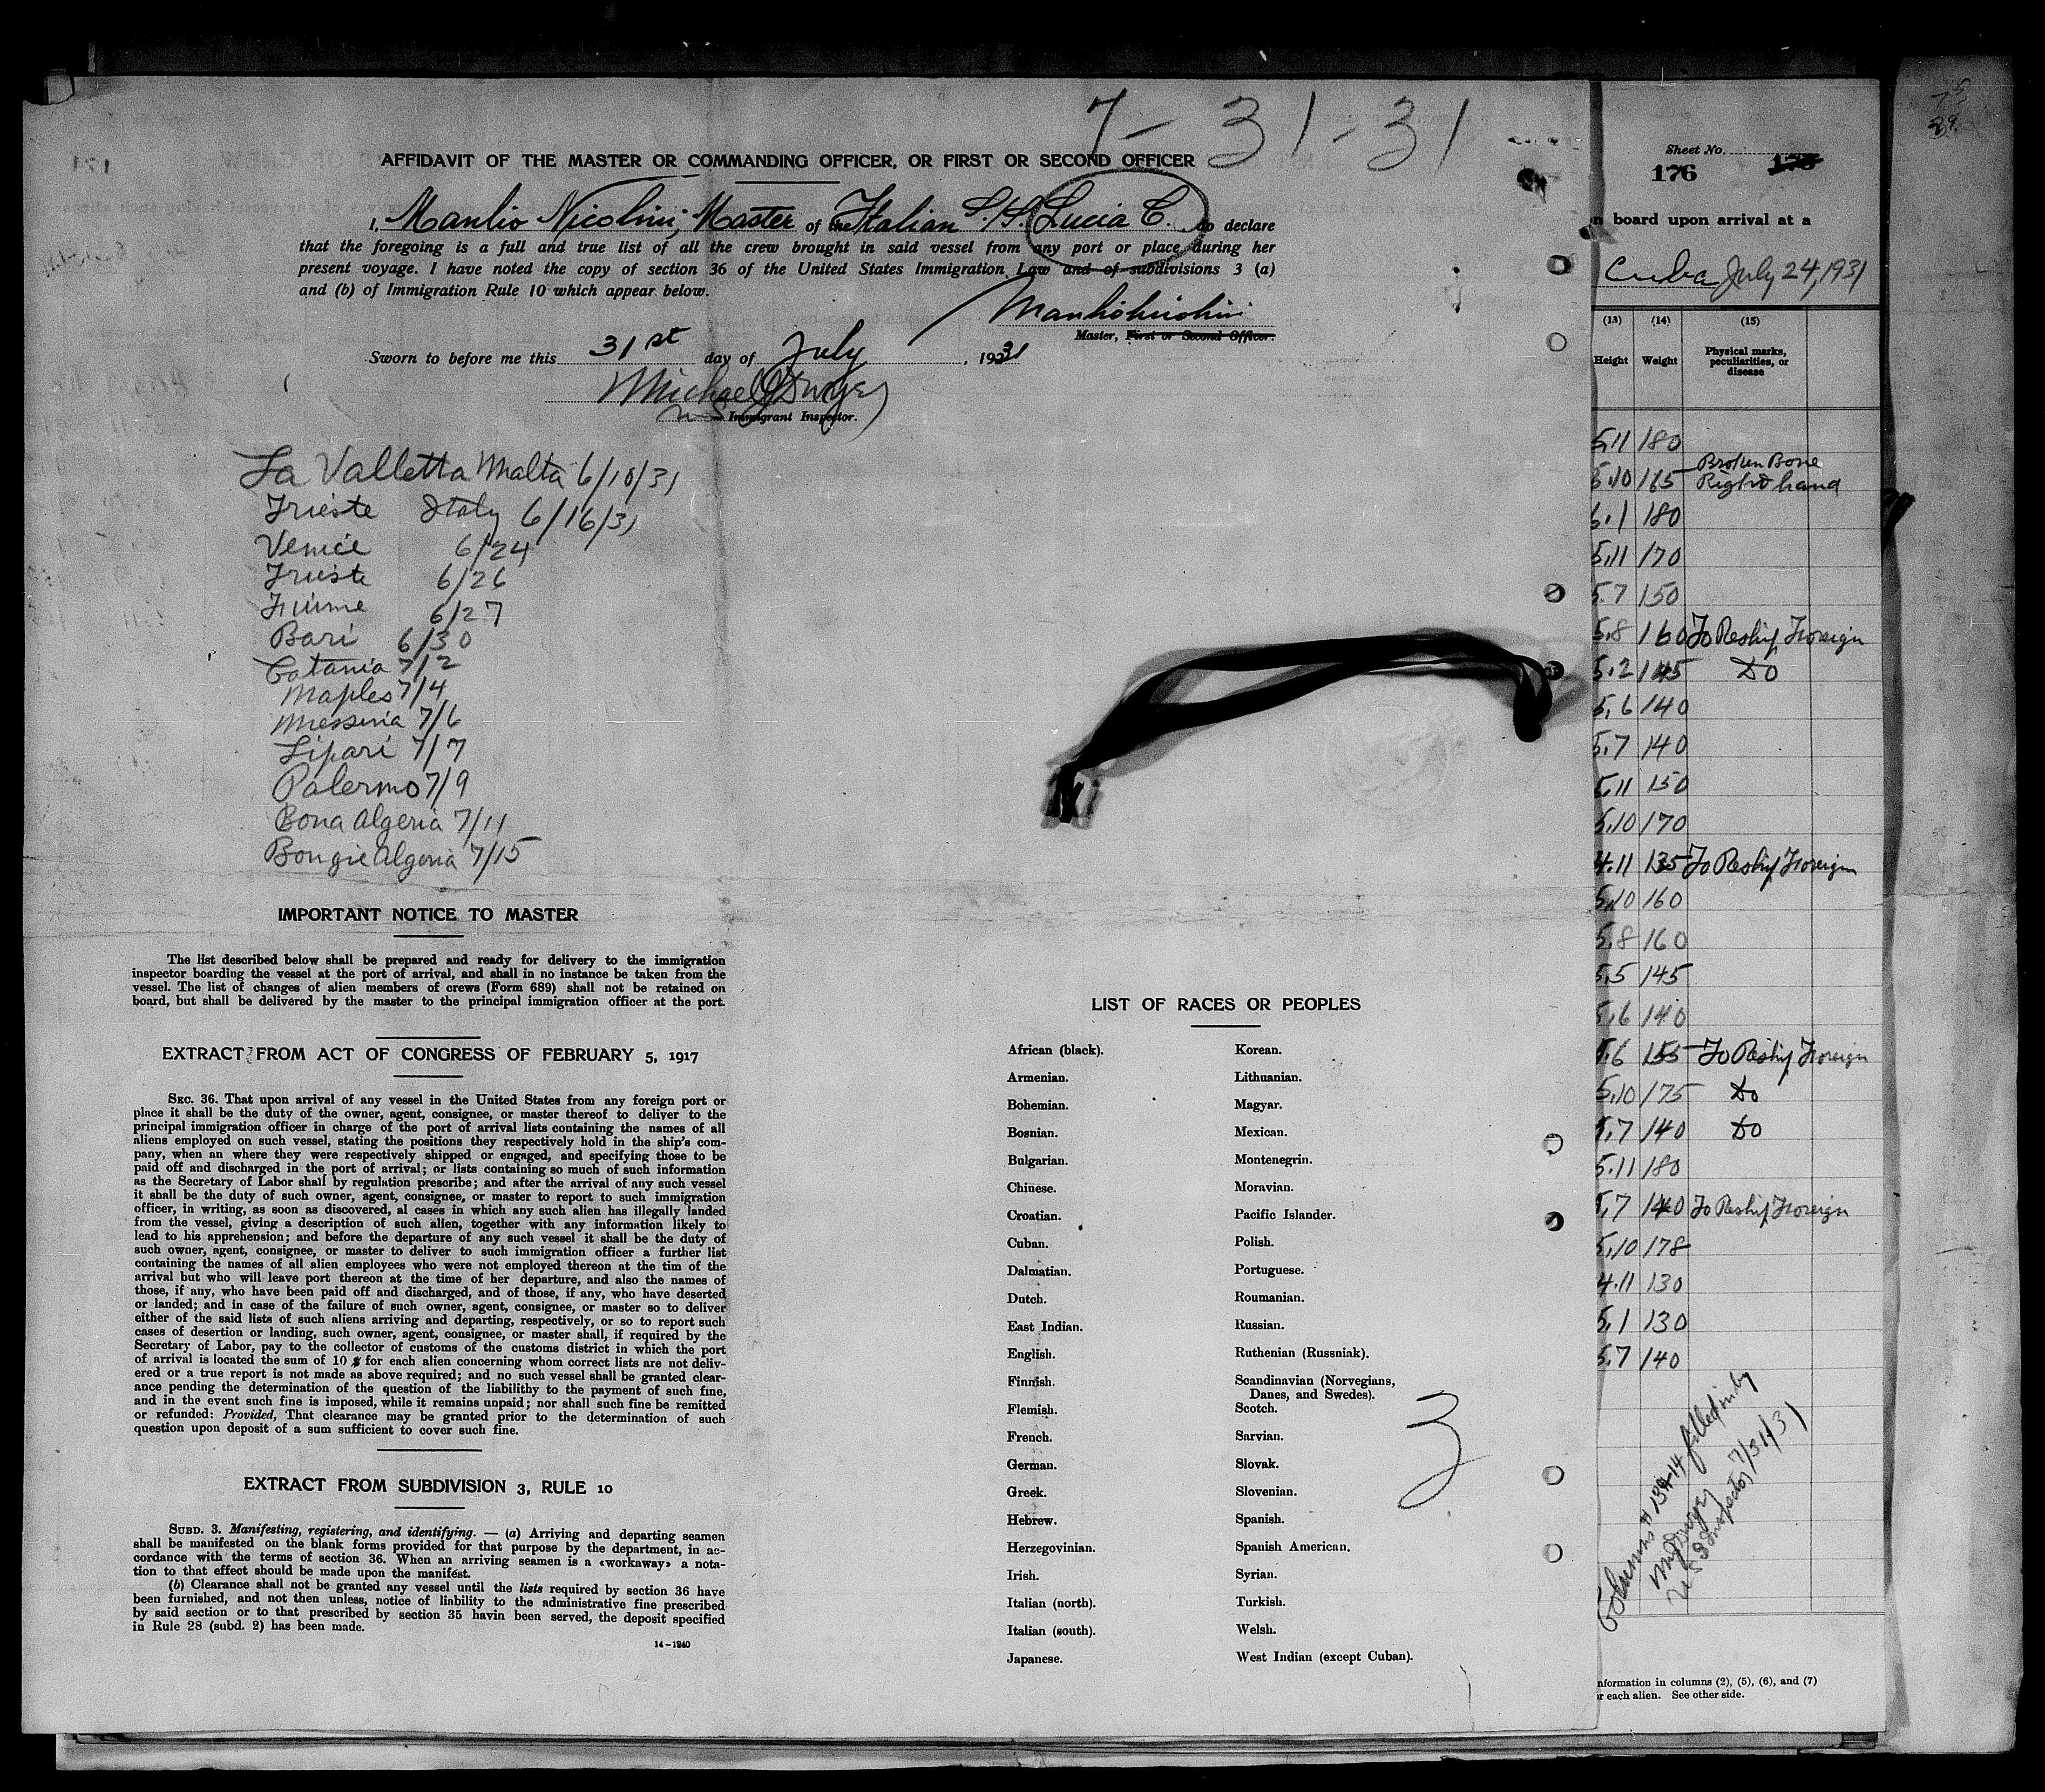 7-31-31
AFFIDAVIT OF THE MASTER OR COMMANDING OFFICER, OR FIRST OR SECOND OFFICER
I, Manlio Nicolini, Master of the Italian S.S. Lucia C. do declare
that the foregoing is a full and true list of all the crew brought in said vessel from any port or place during her
present voyage. I have noted the copy of section 36 of the United States Immigration Law and of subdivisions 3 (a)
and (b) of Immigration Rule 10 which appear below.
Master, First or Second Officer.
Sworn to before me this 31st day of July, 1931
Michael J Dwyer
US Immigrant Inspector.
La Valletta Malta 6/10/31
Trieste Italy 6/16/31
Venice 6/24
Trieste 6/26
Fiume 6/27
Bari 6/30
Catania 7/2
Naples 7/4
Messina 7/6
Lipari 7/7
Palermo 7/9
Bona Algeria 7/11
Bougie Algeria 7/15
IMPORTANT NOTICE TO MASTER
The list described below shall be prepared and ready for delivery to the immigration
inspector boarding the vessel at the port of arrival, and shall in no instance be taken from the
vessel. The list of changes of alien members of crews (Form 689) shall not be retained on
board, but shall be delivered by the master to the principal immigration officer at the port.
EXTRACT FROM ACT OF CONGRESS OF FEBRUARY 5, 1917
SEC. 36. That upon arrival of any vessel in the United States from any foreign port or
place it shall be the duty of the owner, agent, consignee, or master thereof to deliver to the
principal immigration officer in charge of the port of arrival lists containing the names of all
aliens employed on such vessel, stating the positions they respectively hold in the ship's com-
pany, when an where they were respectively shipped or engaged, and specifying those to be
paid off and discharged in the port of arrival; or lists containing so much of such information
as the Secretary of Labor shall by regulation prescribe; and after the arrival of any such vessel
it shall be the duty of such owner, agent, consignee, or master to report to such immigration
officer, in writing, as soon as discovered, al cases in which any such alien has illegally landed
from the vessel, giving a description of such alien, together with any information likely to
lead to his apprehension; and before the departure of any such vessel it shall be the duty of
such owner, agent, consignee, or master to deliver to such immigration officer a further list
containing the names of all alien employees who were not employed thereon at the tim of the
arrival but who will leave port thereon at the time of her departure, and also the names of
those, if any, who have been paid off and discharged, and of those, if any, who have deserted
or landed; and in case of the failure of such owner, agent, consignee, or master so to deliver
either of the said lists of such aliens arriving and departing, respectively, or so to report such
cases of desertion or landing, such owner, agent, consignee, or master shall, if required by the
Secretary of Labor, pay to the collector of customs of the customs district in which the port
of arrival is located the sum of 10 $ for each alien concerning whom correct lists are not deliv-
ered or a true report is not made as above required; and no such vessel shall be granted clear-
ance pending the determination of the question of the liabilithy to the payment of such fine,
and in the event such fine is imposed, while it remains unpaid; nor shall such fine be remitted
or refunded: Provided, That clearance may be granted prior to the determination of such
question upon deposit of a sum sufficient to cover such fine.
EXTRACT FROM SUBDIVISION 3, RULE 10
SUBD. 3. Manifesting, registering, and identifying. — (a) Arriving and departing seamen
shall be manifested on the blank forms provided for that purpose by the department, in ac-
cordance with the terms of section 36. When an arriving seamen is a «workaway» a nota-
tion to that effect should be made upon the manifest.
(b) Clearance shall not be granted any vessel until the lists required by section 36 have
been furnished, and not then unless, notice of liability to the administrative fine prescribed
by said section or to that prescribed by section 35 havin been served, the deposit specified
in Rule 28 (subd. 2) has been made.
14-1240
LIST OF RACES OR PEOPLES
African (black). Korean.
Armenian. Lithuanian.
Bohemian. Magyar.
Bosnian. Mexican.
Bulgarian. Montenegrin.
Chinese. Moravian.
Croatian. Pacific Islander.
Cuban. Polish.
Dalmatian. Portuguese.
Dutch. Roumanian.
East Indian. Russian.
English. Ruthenian (Russniak).
Finnish. Scandinavian (Norwegians,
Danes, and Swedes).
Flemish. Scotch.
French. Sarvian.
German. Slovak.
Greek. Slovenian.
Hebrew. Spanish.
Herzegovinian. Spanish American.
Irish. Syrian.
Italian (north). Turkish.
Italian (south). Welsh.
Japanese. West Indian (except Cuban).
3
Sheet No.
176
board upon arrival at a
Cuba July 24, 1931
(13) (14) (15)
Height Weight Physical marks,
peculiarities, or
disease
5,11 180
5,10 165 Broken Bone
Right hand
6,1 180
5,11 170
5.7 150
5,8 160 To Reship Foreign
5,2 145 Do
5,6 140
5,7 140
5,11 150
5,10 170
4.11 135 To Reship Foreign
5,10 160
5,8 160
5,5 145
5,6 140
5,6 155 To Reship Foreign
5,10 175 Do
5,7 140 Do
5.11 180
5,7 140 To Reship Foreign
5,10 178
4.11 130
5,1 130
5.7 140
Columns filled in by
M J Dwyer
US Inspector 7/31/31
information in columns (2), (5), (6), and (7)
or each alien. See other side.